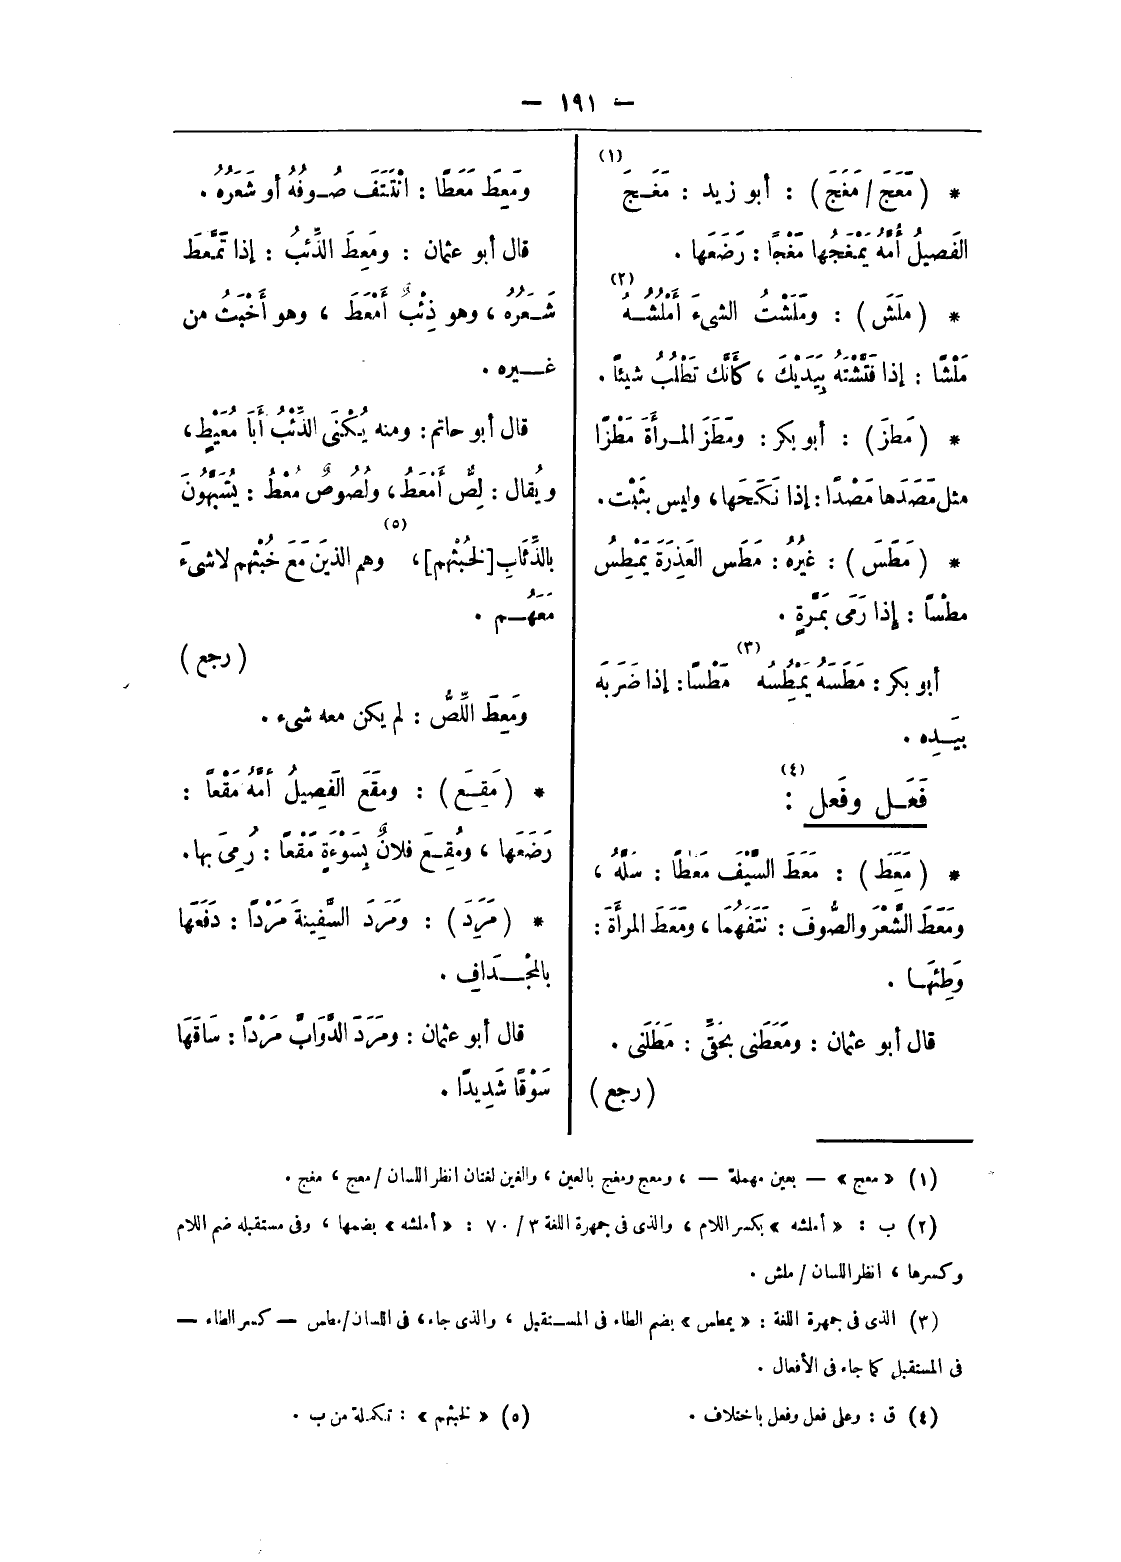 — ١٩١ —
* ( مَعَجَ / مَغَجَ ) : أبو زيد : مَغَـجَ (١)
الفَصِيلُ أُمَّهُ يَمْغَجُها مَغْجًا : رَضَعَها .
* ( ملَشَ ) : ومَلَشْتُ الشيءَ أَمْلُشُـهُ (٢)
مَلْشًا : إذا فَتَّشْتَهُ بِيَدَيْكَ ، كأَنَّك تَطْلُبُ شيئاً .
* ( مَطزَ ) : أبو بكر : ومَطَزَ المـرأَةَ مَطْزًا
مثل مَصَدَها مَصْدًا : إذا نَكَحَها ، وليس بثَبْت .
* ( مَطَسَ ) : غيرُهُ : مَطَس العَذِرَةَ يَمْطِسُ
مطْساً : إِذا رَمَى بَمَرَّةٍ .
أبو بكر : مَطَسَهُ يَمْطِسُه (٣) مَطْسًا : إذا ضَرَبَه
بيَــدِه .
فَعَـل وفَعِل (٤) :
* ( مَعَِط ) : مَعَطَ السَّيْفَ مَعْطًا : سَلَّهُ ،
ومَعَطَ الشَّعْرَ والصُّوفَ : نَتَفَهُمَا ، ومَعَطَ المرأَةَ :
وَطِئَهَـا .
قال أبو عثمان : ومَعَطَنى بحَقِّى : مَطَلَنى .
( رجع )
ومَعِطَ مَعَطًا : انْتَتَفَ صُـوفُهُ أو شَعَرُه .
قال أبو عثمان : ومَعِطَ الذِّئبُ : إذا تَمَّعَطَ
شَـعَرُه ، وهو ذِئْبٌ أَمْعَطَ ، وهو أَخْبَثُ من
غــيره .
قال أبو حاتم : ومنه يُكْنَى الذِّئْبُ أَبَا مُعَيْطٍ ،
ويُقال : لِصٌّ أَمْعَطُ ، ولُصُوصٌ مُعْطُ : يُشَبَّهُونَ
بالذِّئَابِ [لخُبْثهم] (٥) ، وهم الذين مَعَ خُبْثهم لاشىءَ
مَعَهُــم .
( رجع )
ومَعِطَ اللِّصُّ : لم يكن معه شىء .
* ( مَقِـَع ) : ومقَعَ الفَصِيلُ أُمَّهُ مَقْعاً :
رَضَعَها ، ومُقِـعَ فلانٌ بِسَوْءَةٍ مَقْعاً : رُمِىَ بها .
* ( مَرَِدَ ) : ومَرَدَ السَّفِينةَ مَرْداً : دَفَعَها
بالمِجْــدَافِ .
قال أبو عثمان : ومَرَدَ الدَّوَابَّ مَرْداً : سَاقَهَا
سَوْقًا شَدِيدًا .
(١) « معج » — بعين مهملة — ، ومعج ومغج بالعين ، والغين لغتان انظر اللسان / معج ، مغج .
(٢) ب : « أملشه » بكسر اللام ، والذى فى جمهرة اللغة ٣ / ٧٠ : « أملشه » بضمها ، وفى مستقبله ضم اللام
وكسرها ، انظر اللسان / ملش .
(٣) الذى فى جمهرة اللغة : « يمطس » بضم الطاء فى المســتقبل ، والذى جاء ، فى اللسان/مطس — كسر الطاء —
فى المستقبل كما جاء فى الأفعال .
(٤) ق : وعلى فعل وفعل باختلاف .
(٥) « لخبثهم » : تكملة من ب .